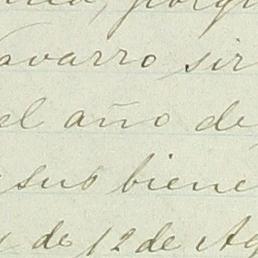 avarro sir
el año de
sus biene
de 12 de Ag